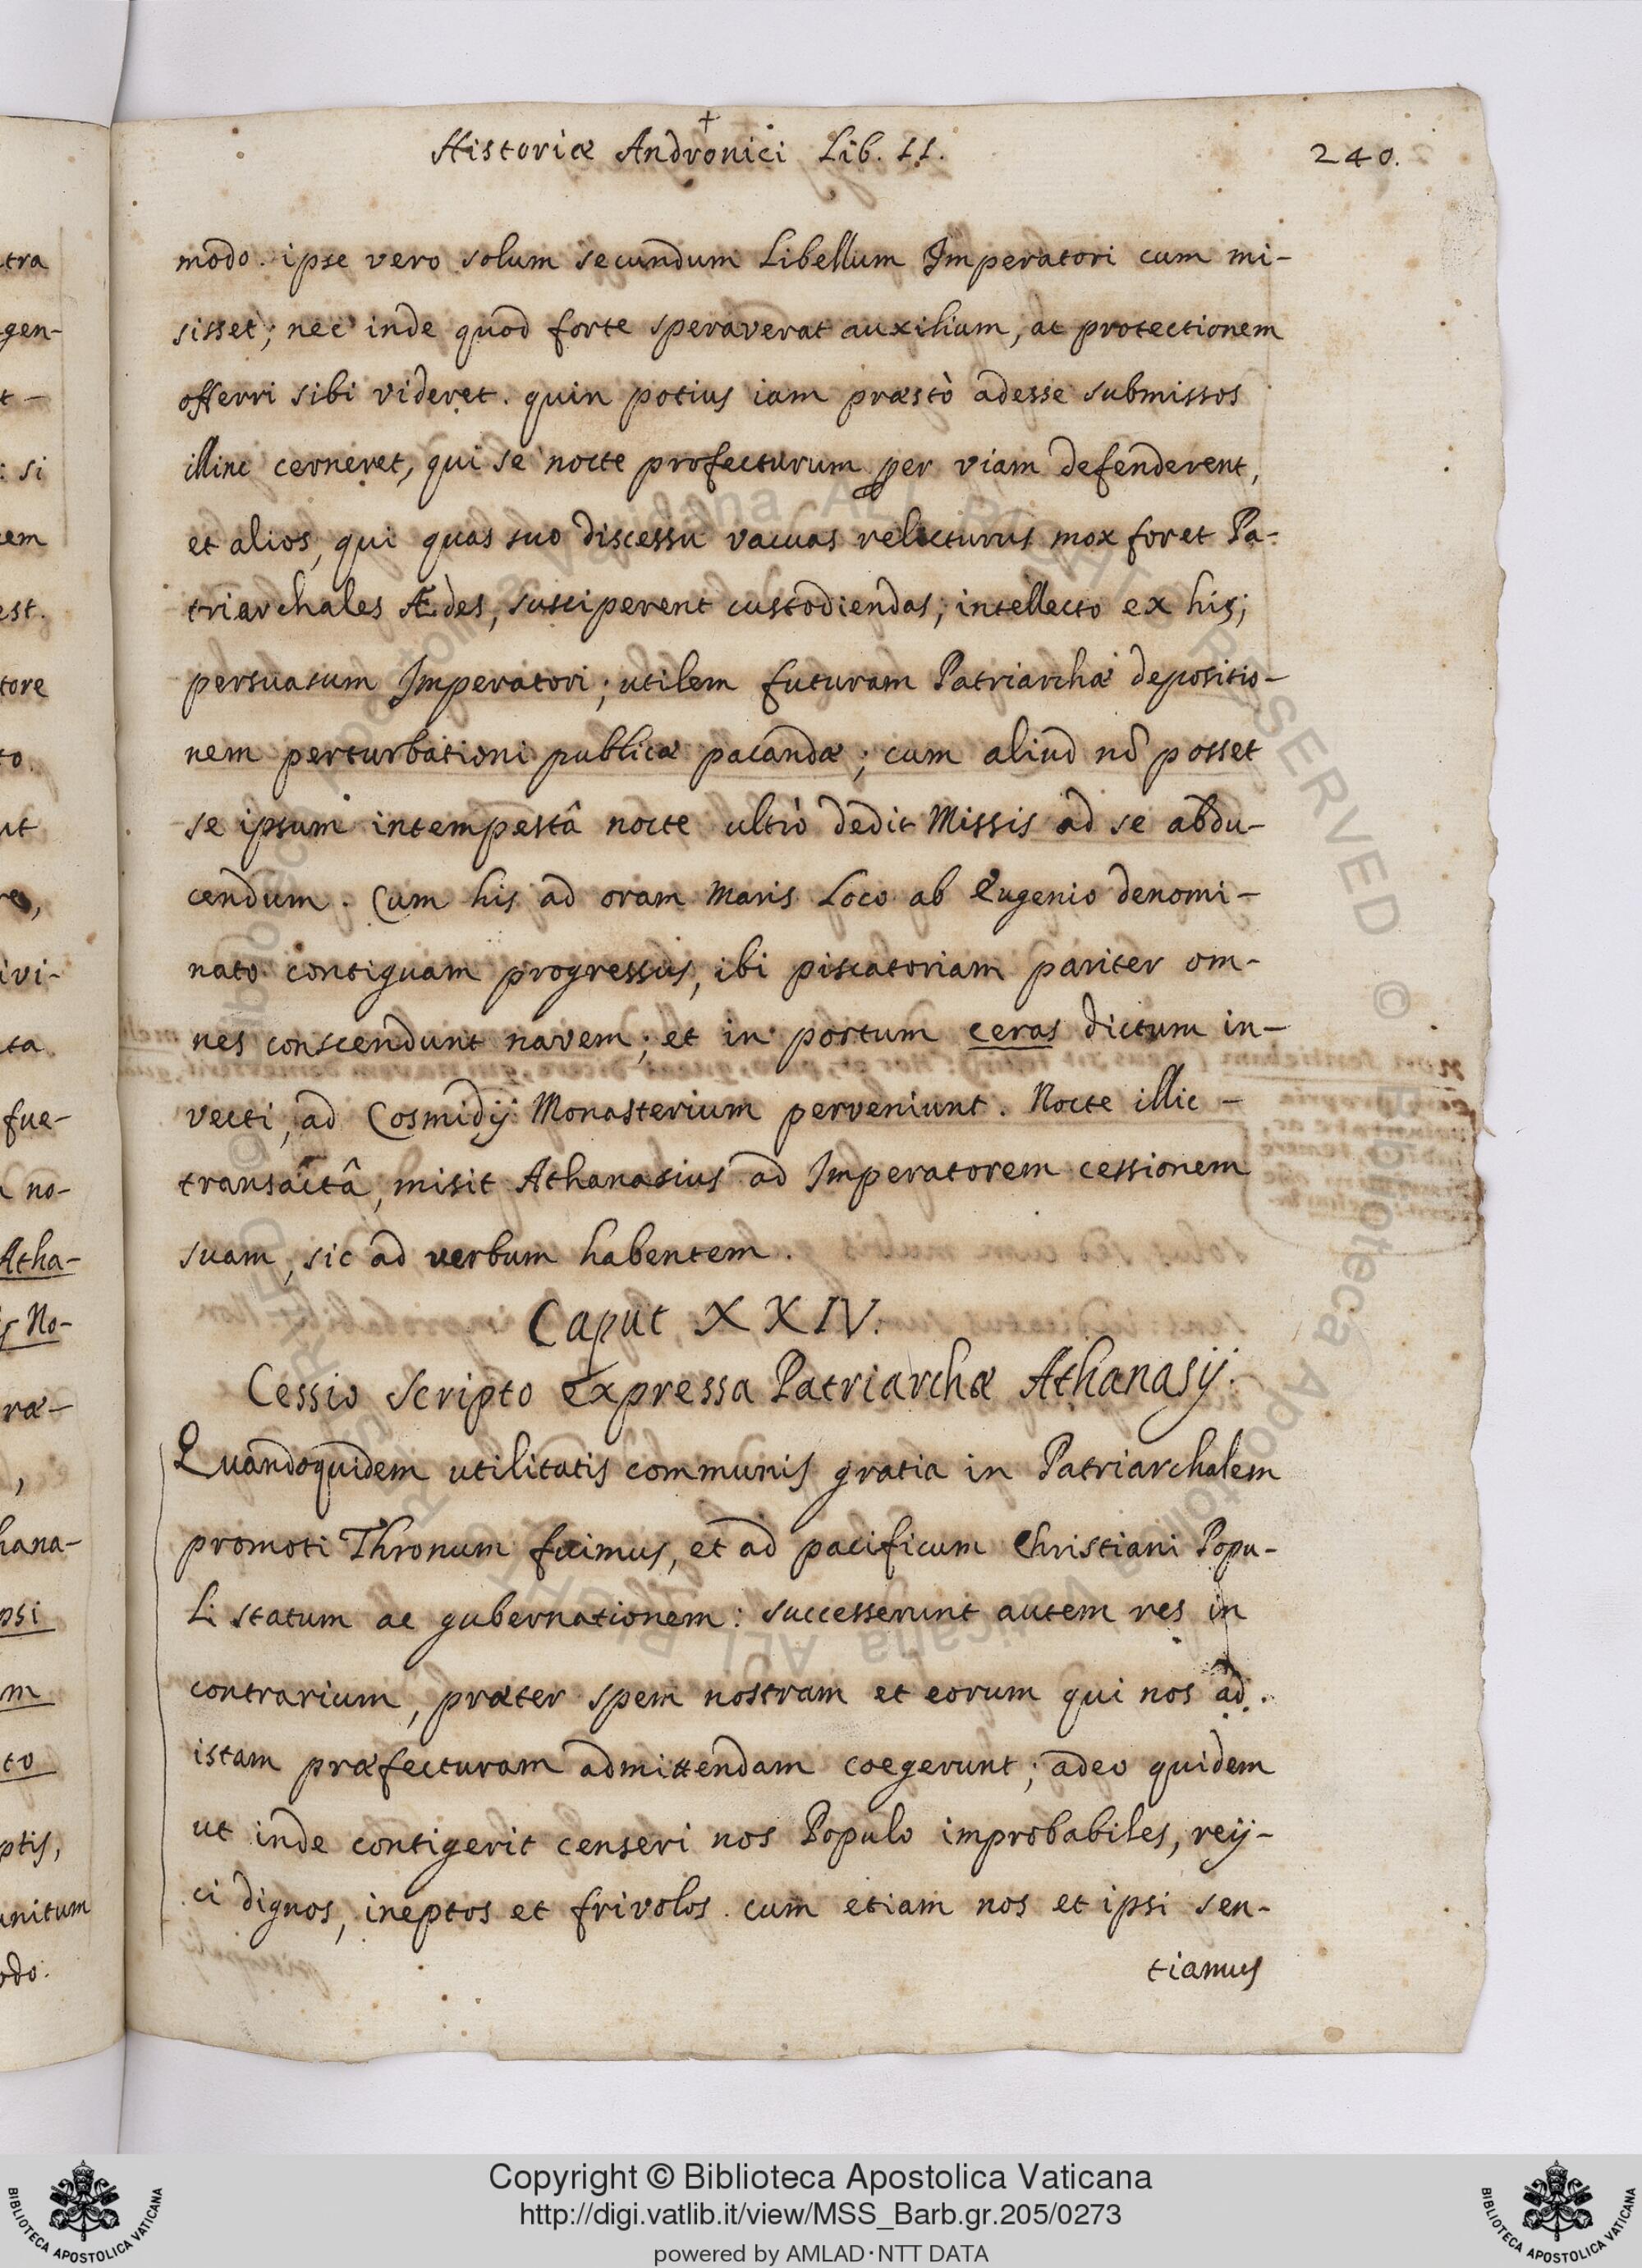 Historiæ Andronici Lib. II.
240.
modo. ipse vero solum secundum Libellum Imperatori cum mi-
sisset; nec inde quod forte speraverat auxilium, ac protectionem
offerri sibi videret. quin potius iam præstò adesse submissos
illinc cerneret, qui se nocte profecturum per viam defenderent,
et alios, qui quas suo discessu vacuas relicturus mox foret Pa-
triarchales Ædes, susciperent custodiendas; intellecto ex his;
persuasum Imperatori; utilem futuram Patriarchæ depositio-
nem perturbationi publicæ pacandæ; cum aliud nō posset
se ipsum intempestâ nocte ultrò dedit Missis ad se abdu-
cendum. Cum his ad oram Maris Loco ab Eugenio denomi-
nato contiguam progressus, ibi piscatoriam pariter om-
nes conscendunt navem; et in portum ceras dictum in-
vecti, ad Cosmidij Monasterium perveniunt. Nocte illic -
transactâ, misit Athanasius ad Imperatorem cessionem
suam, sic ad verbum habentem.
Caput XXIV.
Cessio scripto expressa Patriarchæ Athanasij.
Quandoquidem utilitatis communis gratia in Patriarchalem
promoti Thronum fuimus, et ad pacificum Christiani Popu-
li statum ac gubernationem: successerunt autem res in
contrarium, præter spem nostram et eorum qui nos ad
istam præfecturam admittendam coegerunt; adeo quidem
ut inde contigerit censeri nos Populo improbabiles, reij-
ci dignos, ineptos et frivolos. cum etiam nos et ipsi sen-
tiamus
tra
gen-
t -
: si
em
est.
tore
to.
ut
ivi-
ta
fue-
no-
Atha-
No-
ræ-
hana-
psi
m
to
ptis,
unitum
odo.
Copyright © Biblioteca Apostolica Vaticana
http://digi.vatlib.it/view/MSS_Barb.gr.205/0273
powered by AMLAD·NTT DATA
BIBLIOTECA APOSTOLICA VATICANA
BIBLIOTECA APOSTOLICA VATICANA